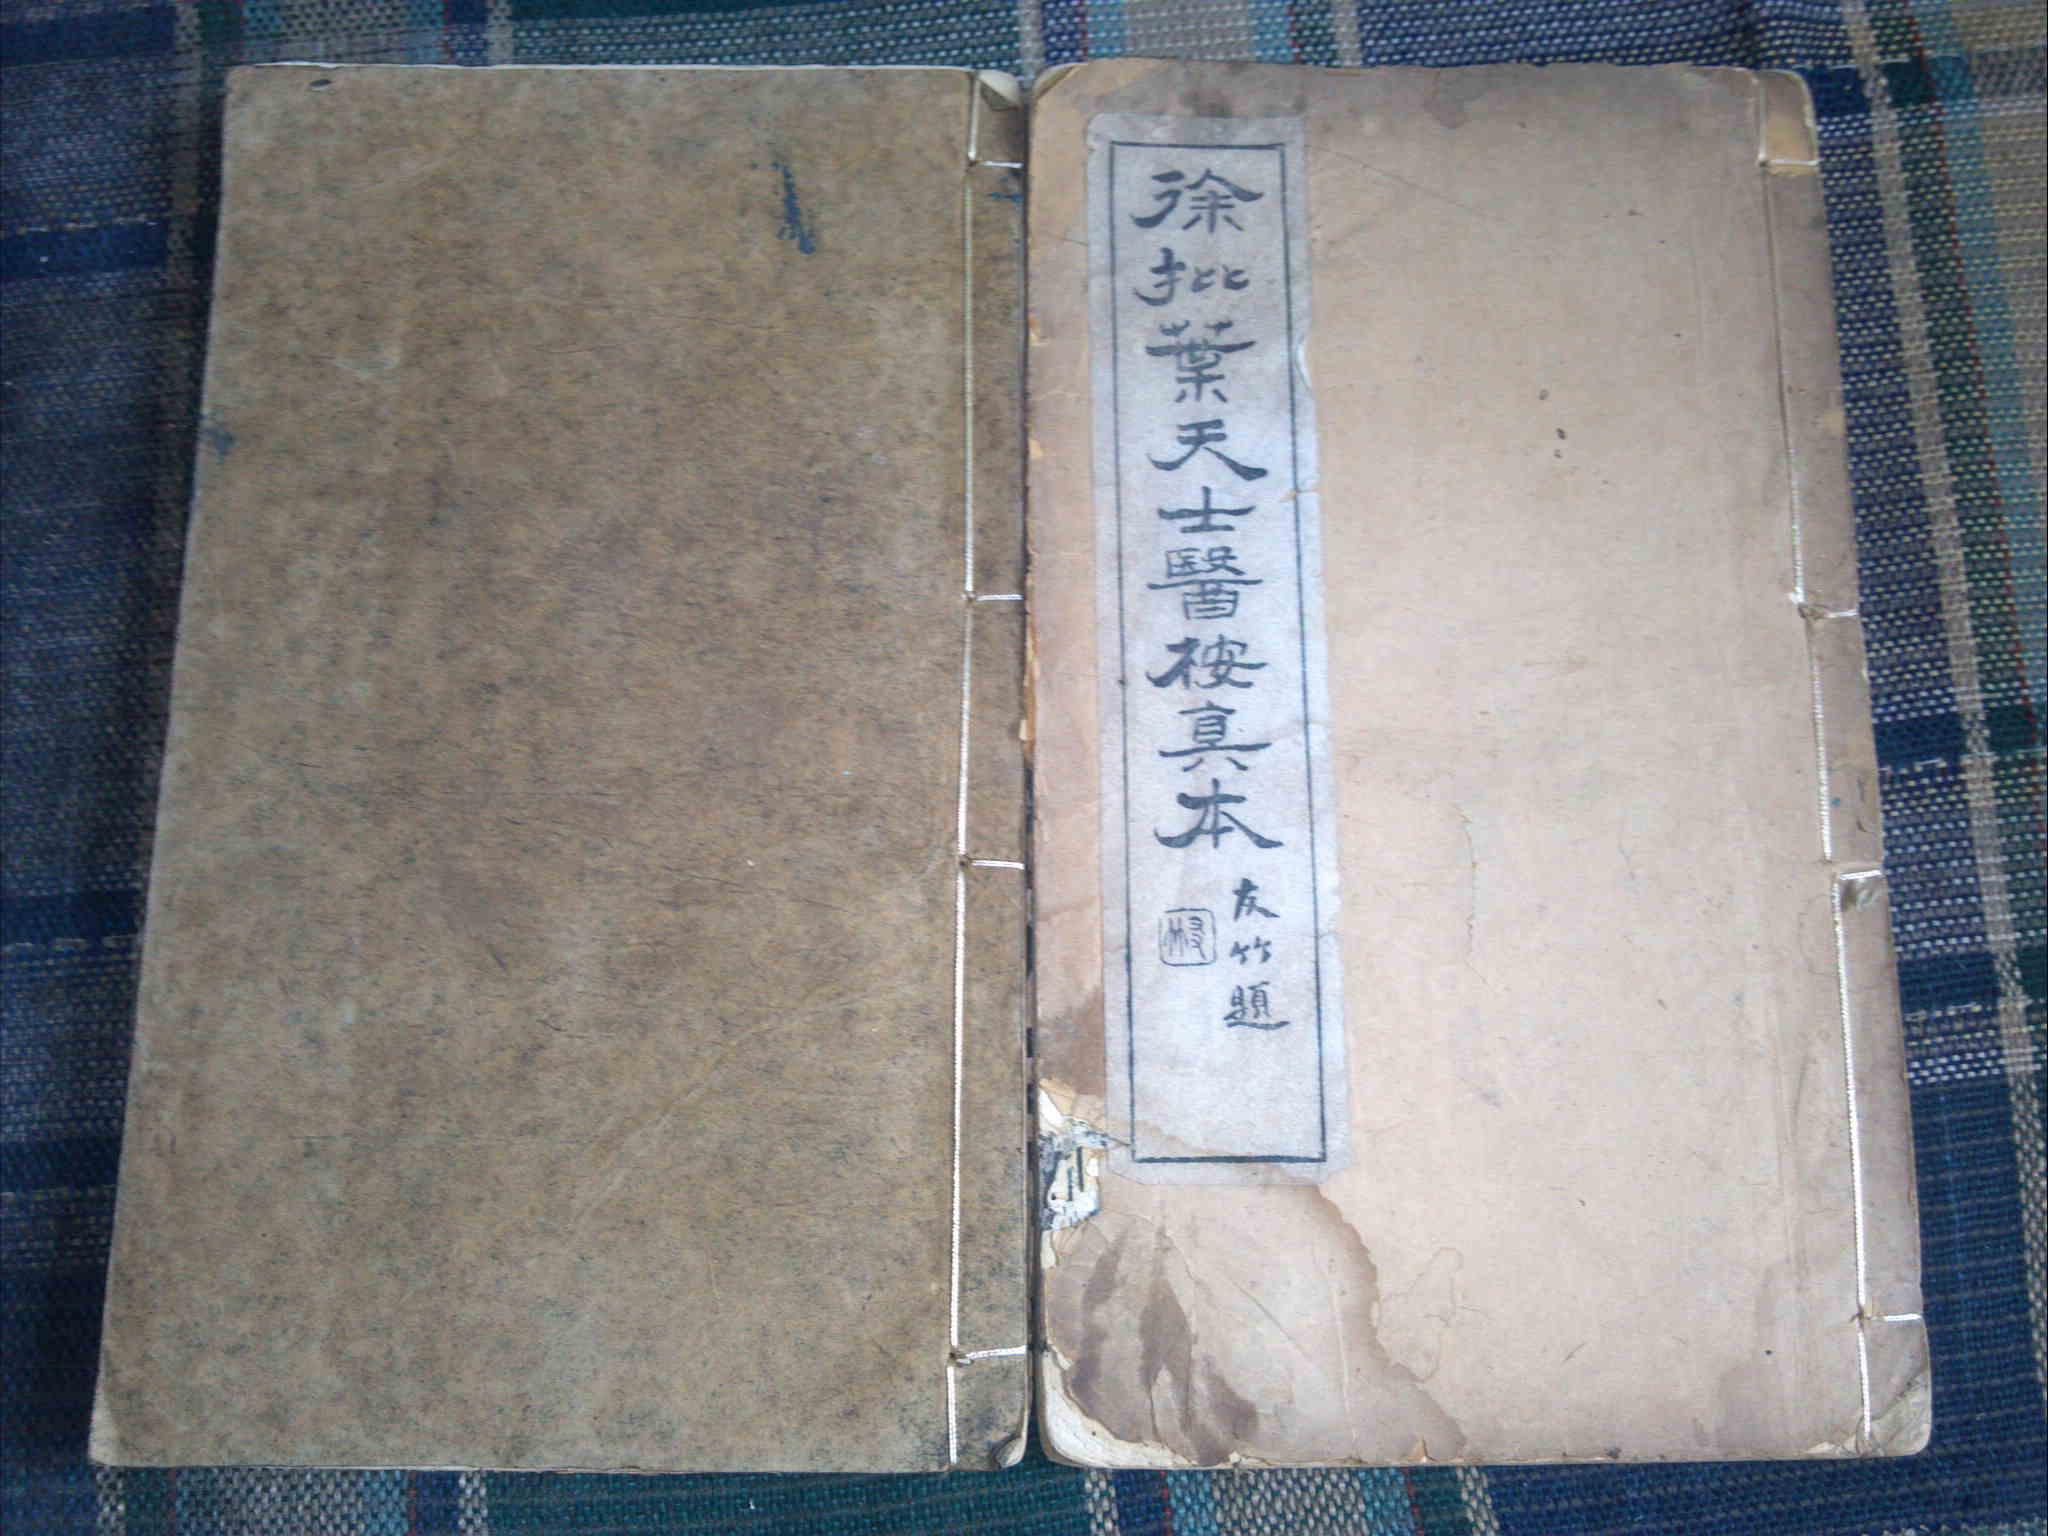 徐批葉天士醫桉真本
友竹題